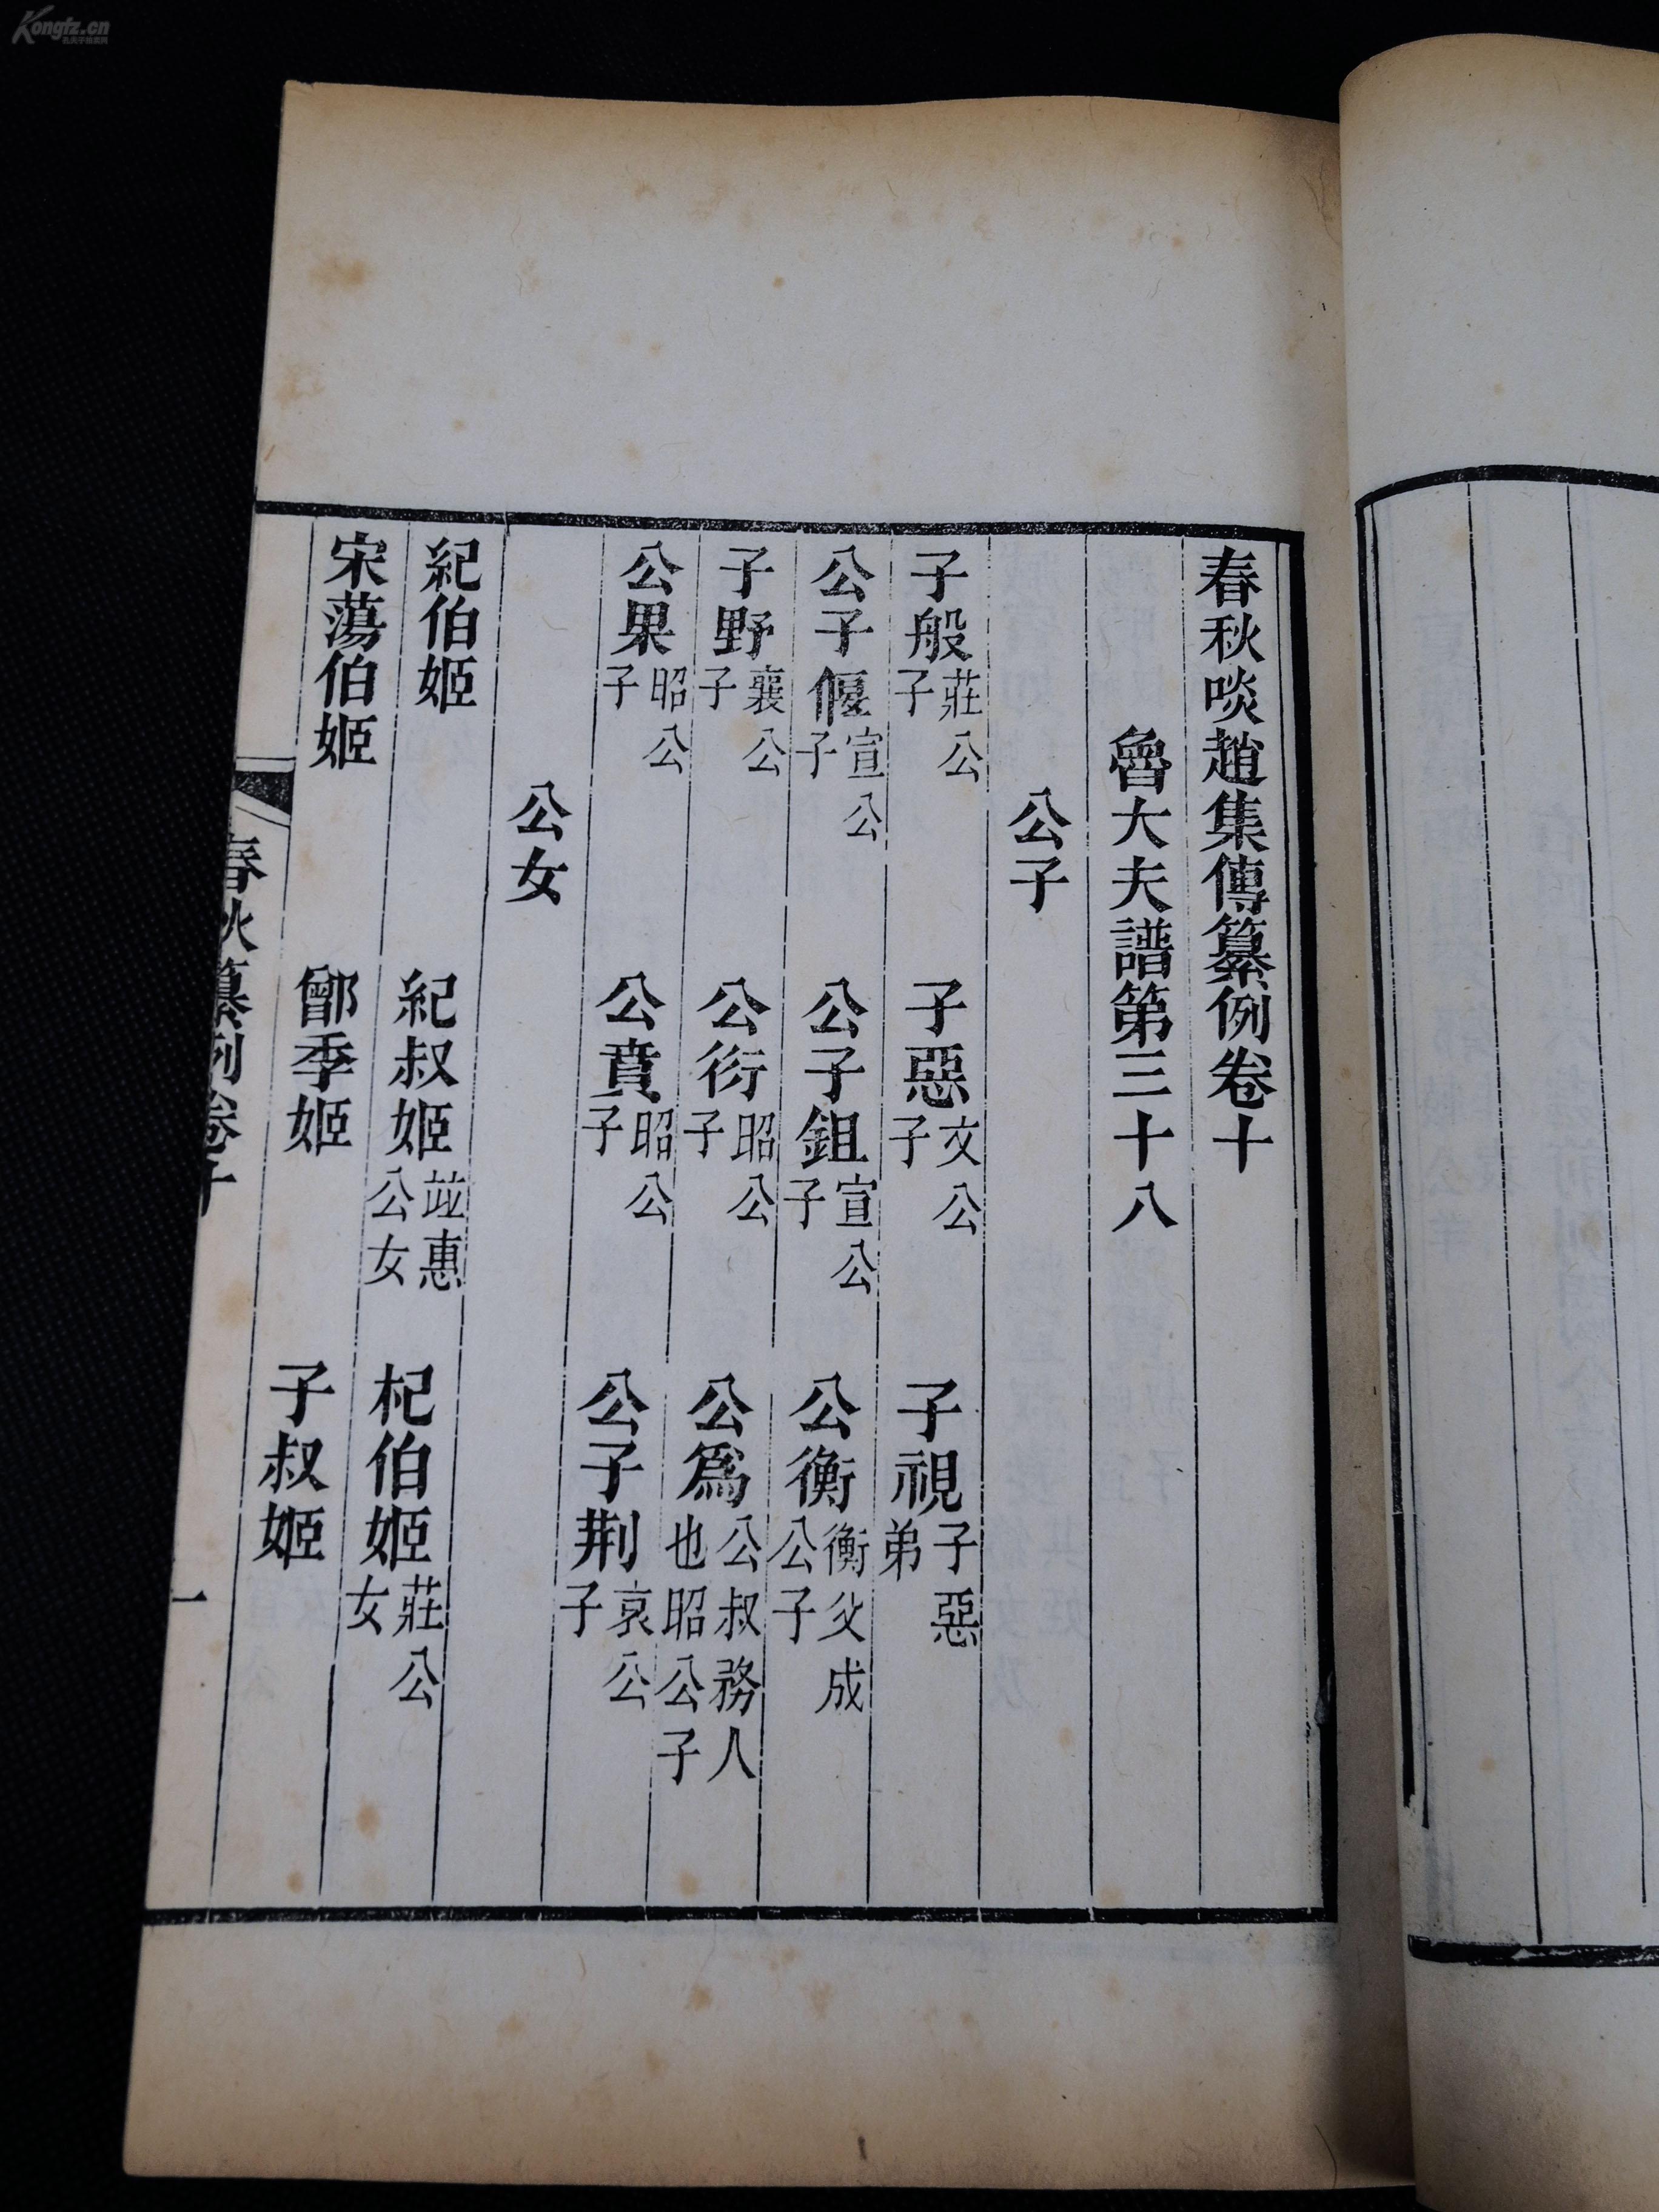 Kongfz.cn
春秋啖趙集傳纂例卷十
魯大夫譜第三十八
公子
子般莊公子 子惡文公子 子視子惡弟
公子偃宣公子 公子鉏宣公子 公衡衡父成公子
子野襄公子 公衍昭公子 公爲公叔務人也昭公子
公果昭公子 公賁昭公子 公子荆哀公子
公女
紀伯姬 紀叔姬竝惠公女 杞伯姬莊公女
宋蕩伯姬 鄫季姬 子叔姬
春秋纂例卷十 一